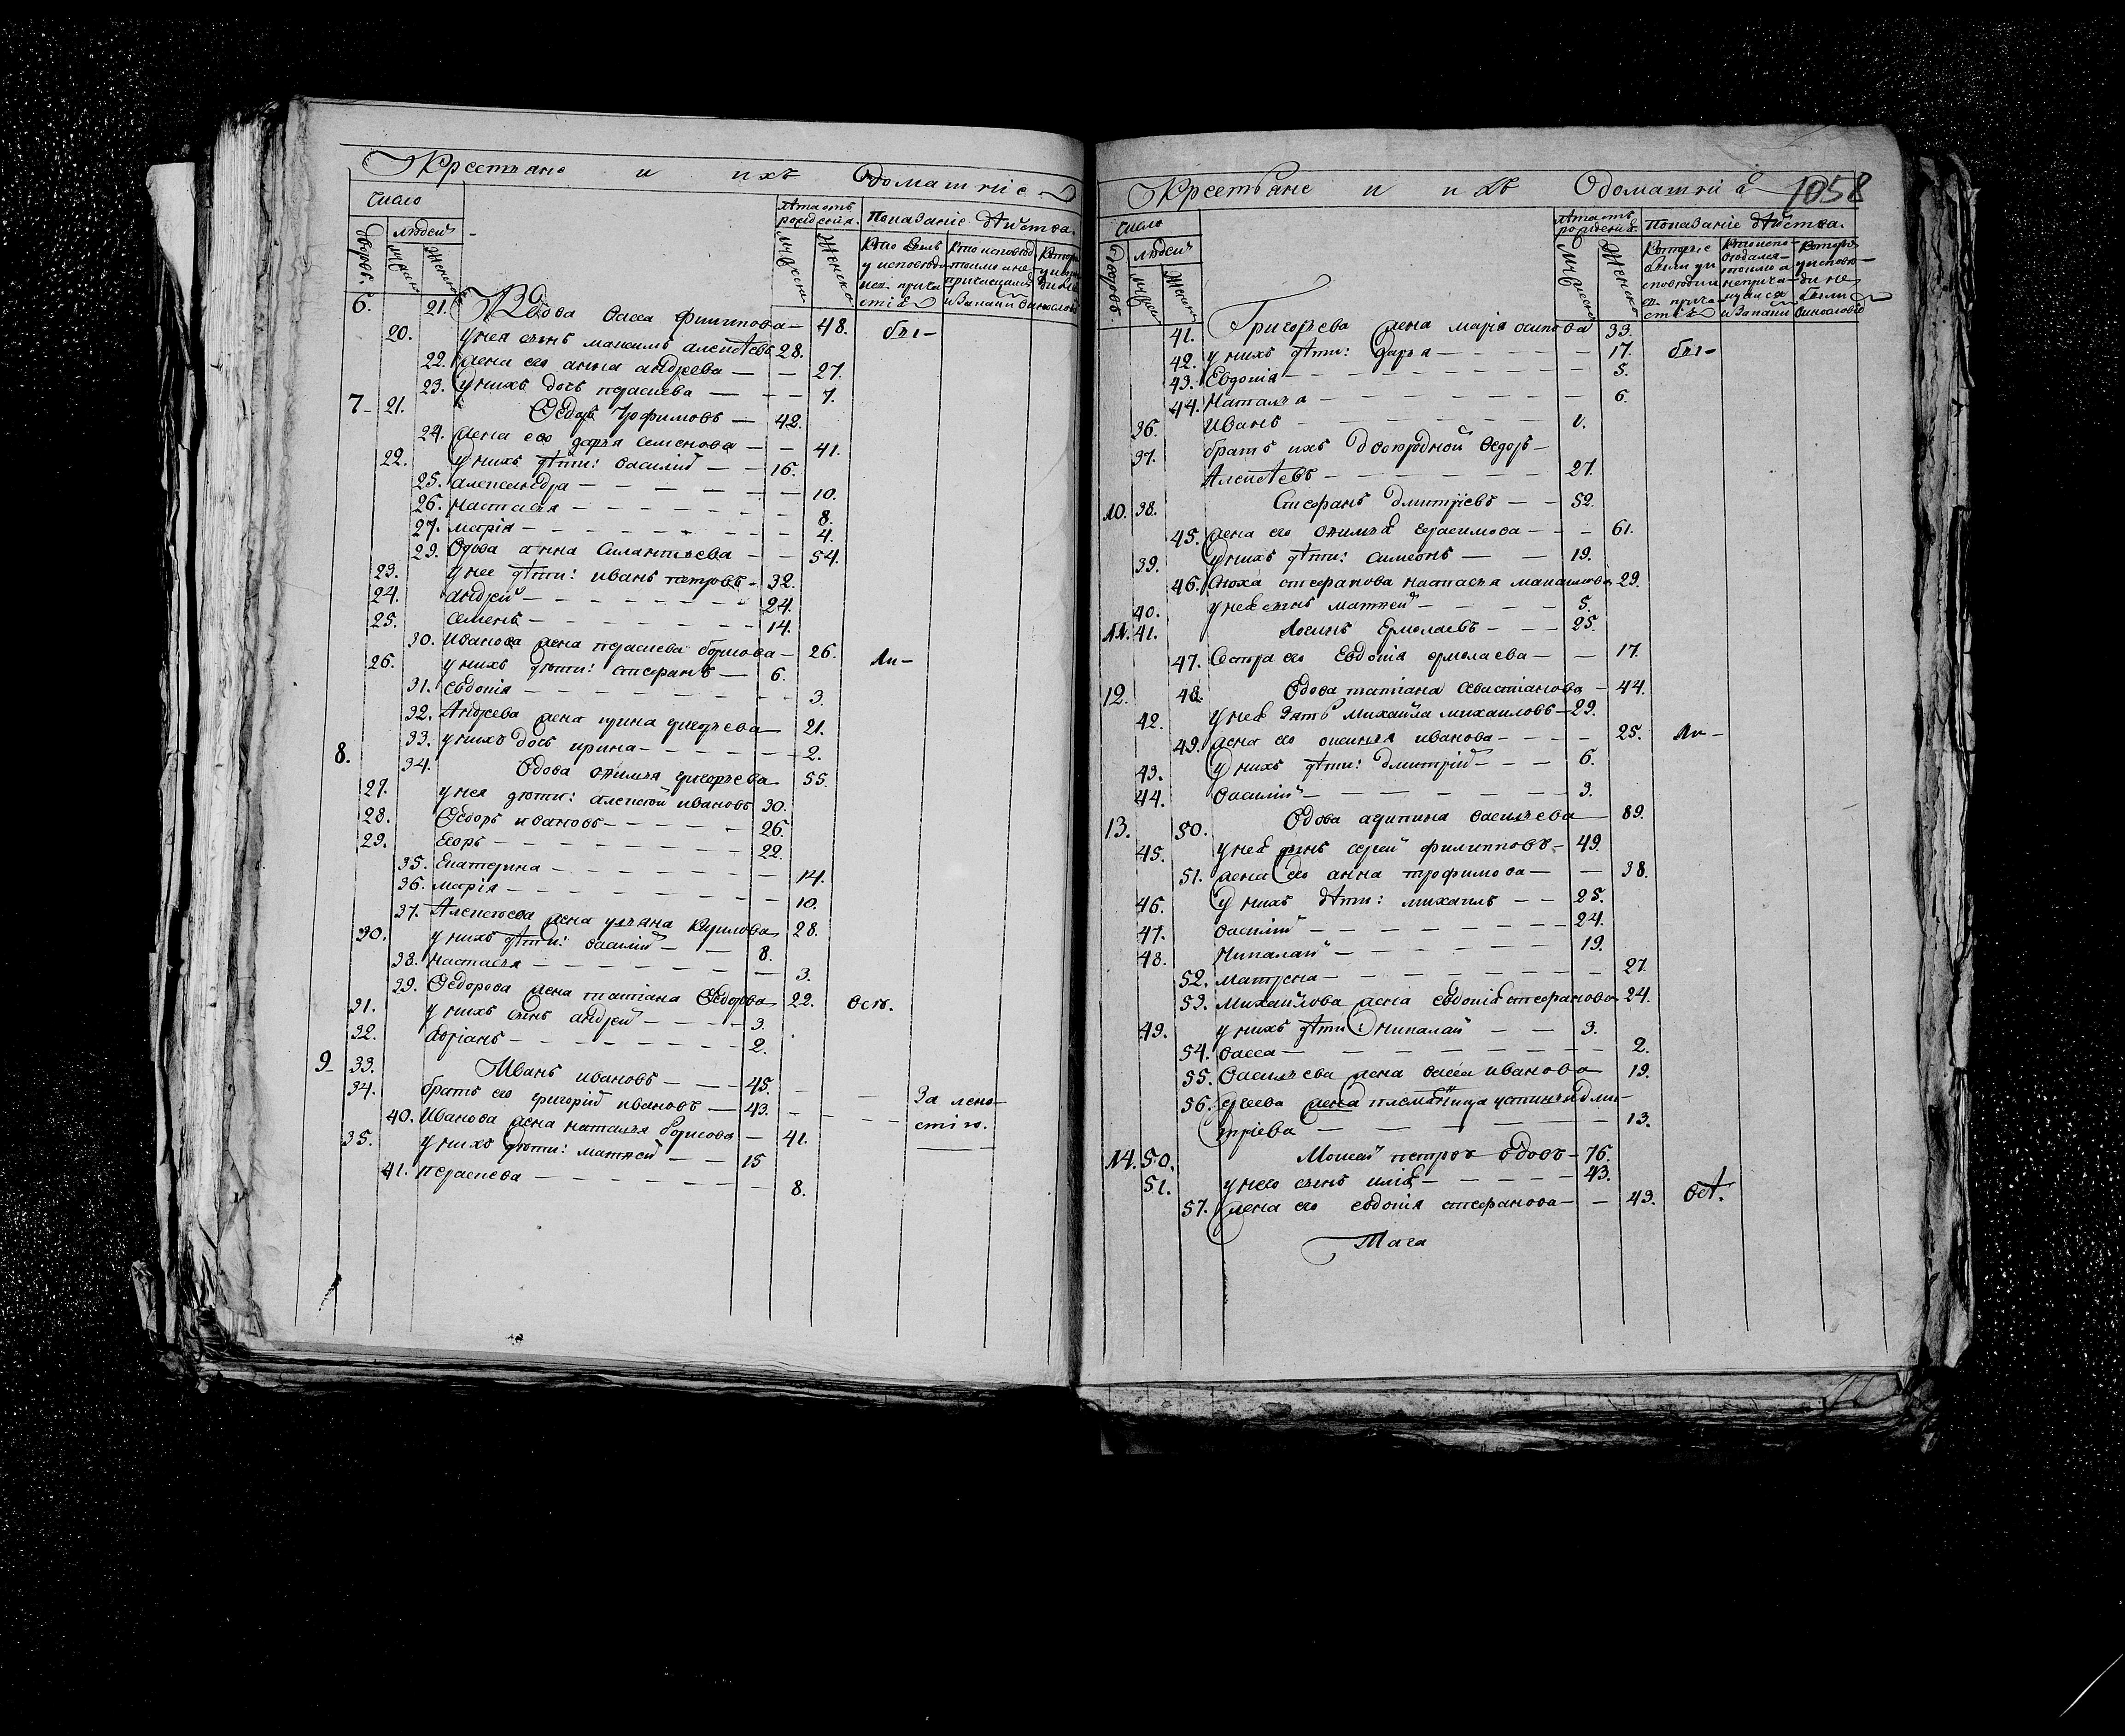 Крестьяне и ихъ Домашніе
Число
людей
дворовъ.
мужеска
женска
лѣта отъ рожденія.
мужеска
женска
Показаніе дѣйства.
Кто былъ у исповѣди и св. прича стія
Кто исповѣд токмо а не причащался и за каки
6. 21. Вдова Васса филипова — 48. бы–
20. у нея сынъ максимъ алексѣевъ 28.
22. жена его анна андреева — — 27.
23. у нихъ дочь параскева — — 7.
7 21. Ѳедоръ Трофимовъ — 42.
24. жена его дарья семенова — — 41.
22. у нихъ дѣти: василій — — 16.
25. александра — 10.
26. настасья — 8.
27. марія — 4.
29. Вдова анна силантьева — — 54.
23. у нее дѣти: иванъ петровъ — 32.
24. андрей — 24.
25. семенъ — 14.
30. иванова жена параскева борисова — 26. ли–
26. у нихъ дѣти: стефанъ — 6.
31. евдокія — 3.
32. Андреева жена ирина григорьева — 21.
33. у нихъ дочь ирина — 2.
8. 34. Вдова акилина григорьева 55.
27. у нея дѣти: алексѣй ивановъ 30.
28. Ѳедоръ ивановъ — 26.
29. Егоръ — 22.
35. Екатерина — 14.
36. марія — 10.
37. Алексѣева жена ульяна Кирилова 28.
30. у нихъ дѣти: василій — 8.
38. настасья — 3.
39. Ѳедорова жена татіана Ѳедорова 22. всѣ.
31. у нихъ сынъ андрей — 3.
32. Адріанъ — 2.
9 33. Иванъ ивановъ — 45.
34. братъ его григорій ивановъ — 43. За лено
40. Иванова жена наталья борисова — 41. стію.
35. у нихъ дѣти: матвей — — 15
41. параскева — 8.
Крестьяне и ихъ Домашніе 1058
Число
людей
дворовъ.
мужеска
женска
лѣта отъ рожденія
мужеска
женска
Показаніе дѣйства.
Которые были у исповѣди и св. прича стія
Кто испо вѣдался токмо а не прича щался и за каки
Которые у исповѣ ди не были
41. Григорьева жена марія осипова 33.
42. у нихъ дѣти: дарья — 17. бы–
43. Евдокія — 5.
44. Наталья — 6.
36. Иванъ — 1.
37. братъ ихъ двоюродной Ѳедоръ —
Алексѣевъ — 27.
10. 38. Стефанъ дмитріевъ — — 52.
45. жена его акилина Герасимова — — 61.
39. у нихъ дѣти: симеонъ — — 19.
46. сноха стефанова настасья максимова 29.
40. у нея сынъ матвей — 5.
11. 41. Логинъ Ермолаевъ — 25.
47. Сестра его Евдокія ермолаева — — 17.
12. 48. Вдова татіана Севастіанова — 44.
42. у нея зять михайла михаиловъ — 29.
49. жена его аксинья иванова — 25. ли–
43. у нихъ дѣти: дмитрій — 6.
44. василій — 3.
13. 50. Вдова акулина васильева — 89.
45. у нея сынъ сергей филипповъ — 49.
51. жена его анна трофимова — — 38.
46. у нихъ дѣти: михаилъ — — 25.
47. василій — 24.
48. николай — 19.
52. матрена — 27.
53. михайлова жена евдокія стефанова 24.
49. у нихъ дѣти: николай — — 3.
54. васса — 2.
55. Васильева жена васса иванова 19.
56. сергеева жена племянница устинья дми–
тріева — 13.
14. 50. Моисей петровъ вдовъ — 76.
51. у него сынъ илія — 43.
57. жена его евдокія стефанова — — 43. всѣ.